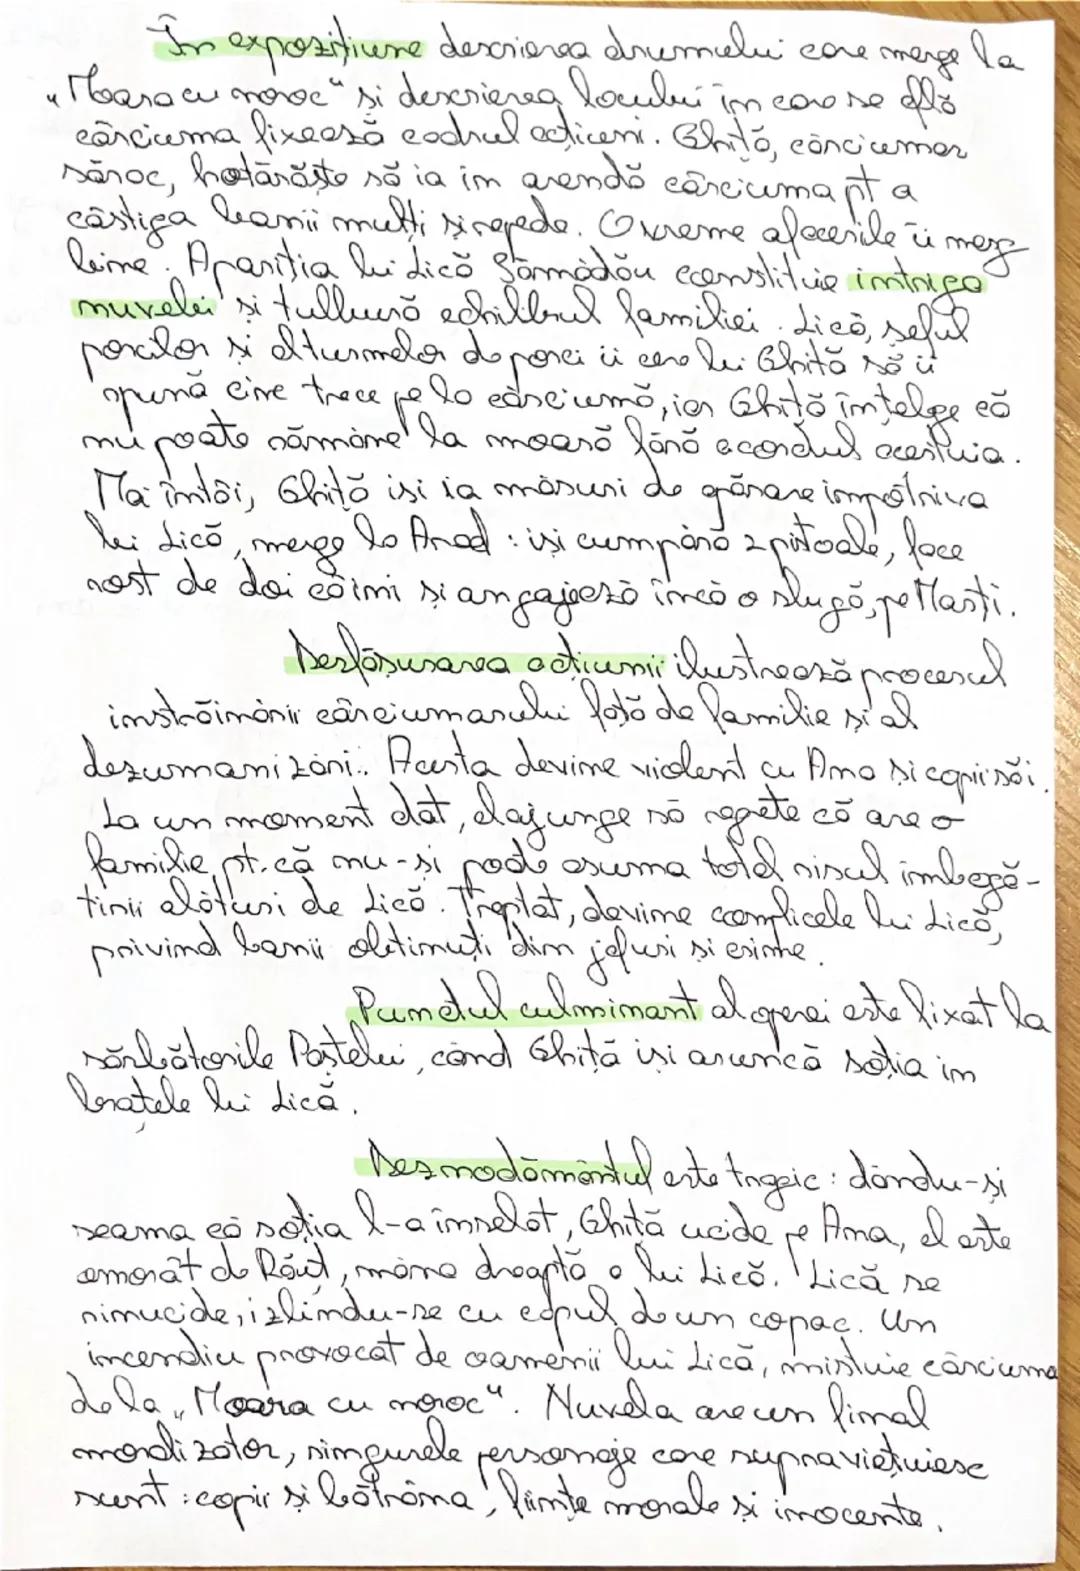 În expozițiune descrierea drumului care merge la
„Moara cu noroc" și descrierea locului în care se află
cârciuma fixează cadrul acțiunii. Ghiță, cârciumar
sărac, hotărăște să ia în arendă cârciuma pt a
câștiga banii mulți și repede. O vreme afacerile îi merg
bine. Apariția lui Lică Sămădău constituie intriga
nuvelei și tulbură echilibrul familiei. Lică, șeful
porcilor și al turmelor de porci îi cere lui Ghiță să îi
spună cine trece pe la cârciumă, iar Ghiță înțelge că
nu poate rămâne la moară fără acordul acestuia.
Mai întâi, Ghiță își ia măsuri de părare împotriva
lui Lică, merge la Arad: își cumpără 2 pistoale, face
rost de doi câini și angajează încă o slugă, pe Marți.
Desfășurarea acțiunii ilustrează procesul
înstrăinării cârciumarului față de familie și al
dezumanizării.. Acesta devine violent cu Ana și copiii săi.
La un moment dat, el ajunge să regrete că are o
familie, pt. că nu-și poate asuma total riscul îmbogă-
țirii alături de Lică. Treptat, devine complicele lui Lică,
privind banii obținuți din jefuri și crime.
Punctul culminant al operei este fixat la
sărbătorile Paștelui, când Ghiță își aruncă soția în
brațele lui Lică.
Deznodământul este tragic: dându-și
seama că soția l-a înșelat, Ghiță ucide pe Ana, el este
omorât de Răuț, mâna dreaptă a lui Lică. Lică se
sinucide, izbindu-se cu capul de un copac. Un
incendiu provocat de oamenii lui Lică, mistuie cârciuma
de la „Moara cu noroc". Nuvela are un final
moralizator, singurele personaje care supraviețuiesc
sunt: copiii și bătrâna, ființe morale și inocente.